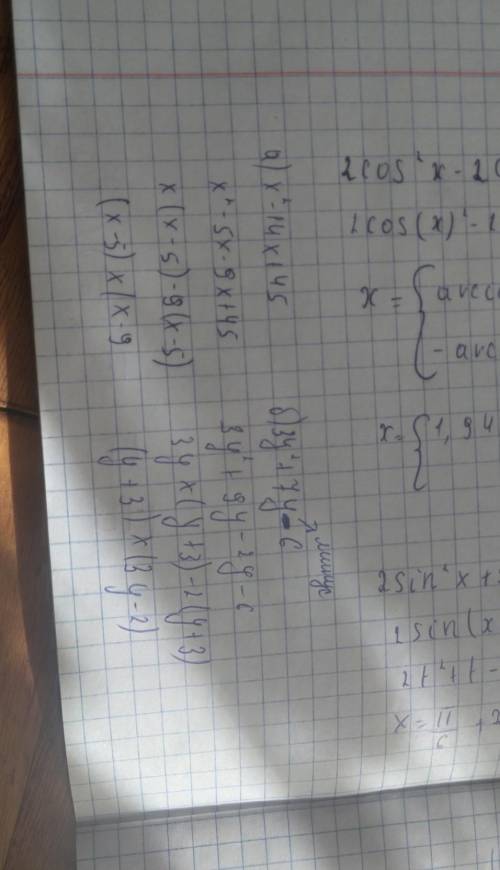 а) x² - 14x + 45
x² - 5x - 9x + 45
x(x - 5) - 9(x - 5)
(x - 5) x (x - 9
б) 3y² + 7y - 6
минус
3y² + 9y - 2y - 6
3y x (y + 3) - 2(y + 3)
(y + 3) x (3y - 2)
2cos²x - 2
2cos(x)² -
x = { arcc
- arc
x = { 1, 94
2sin²x +
2sin(x
2t² + t -
x = π
+ 2